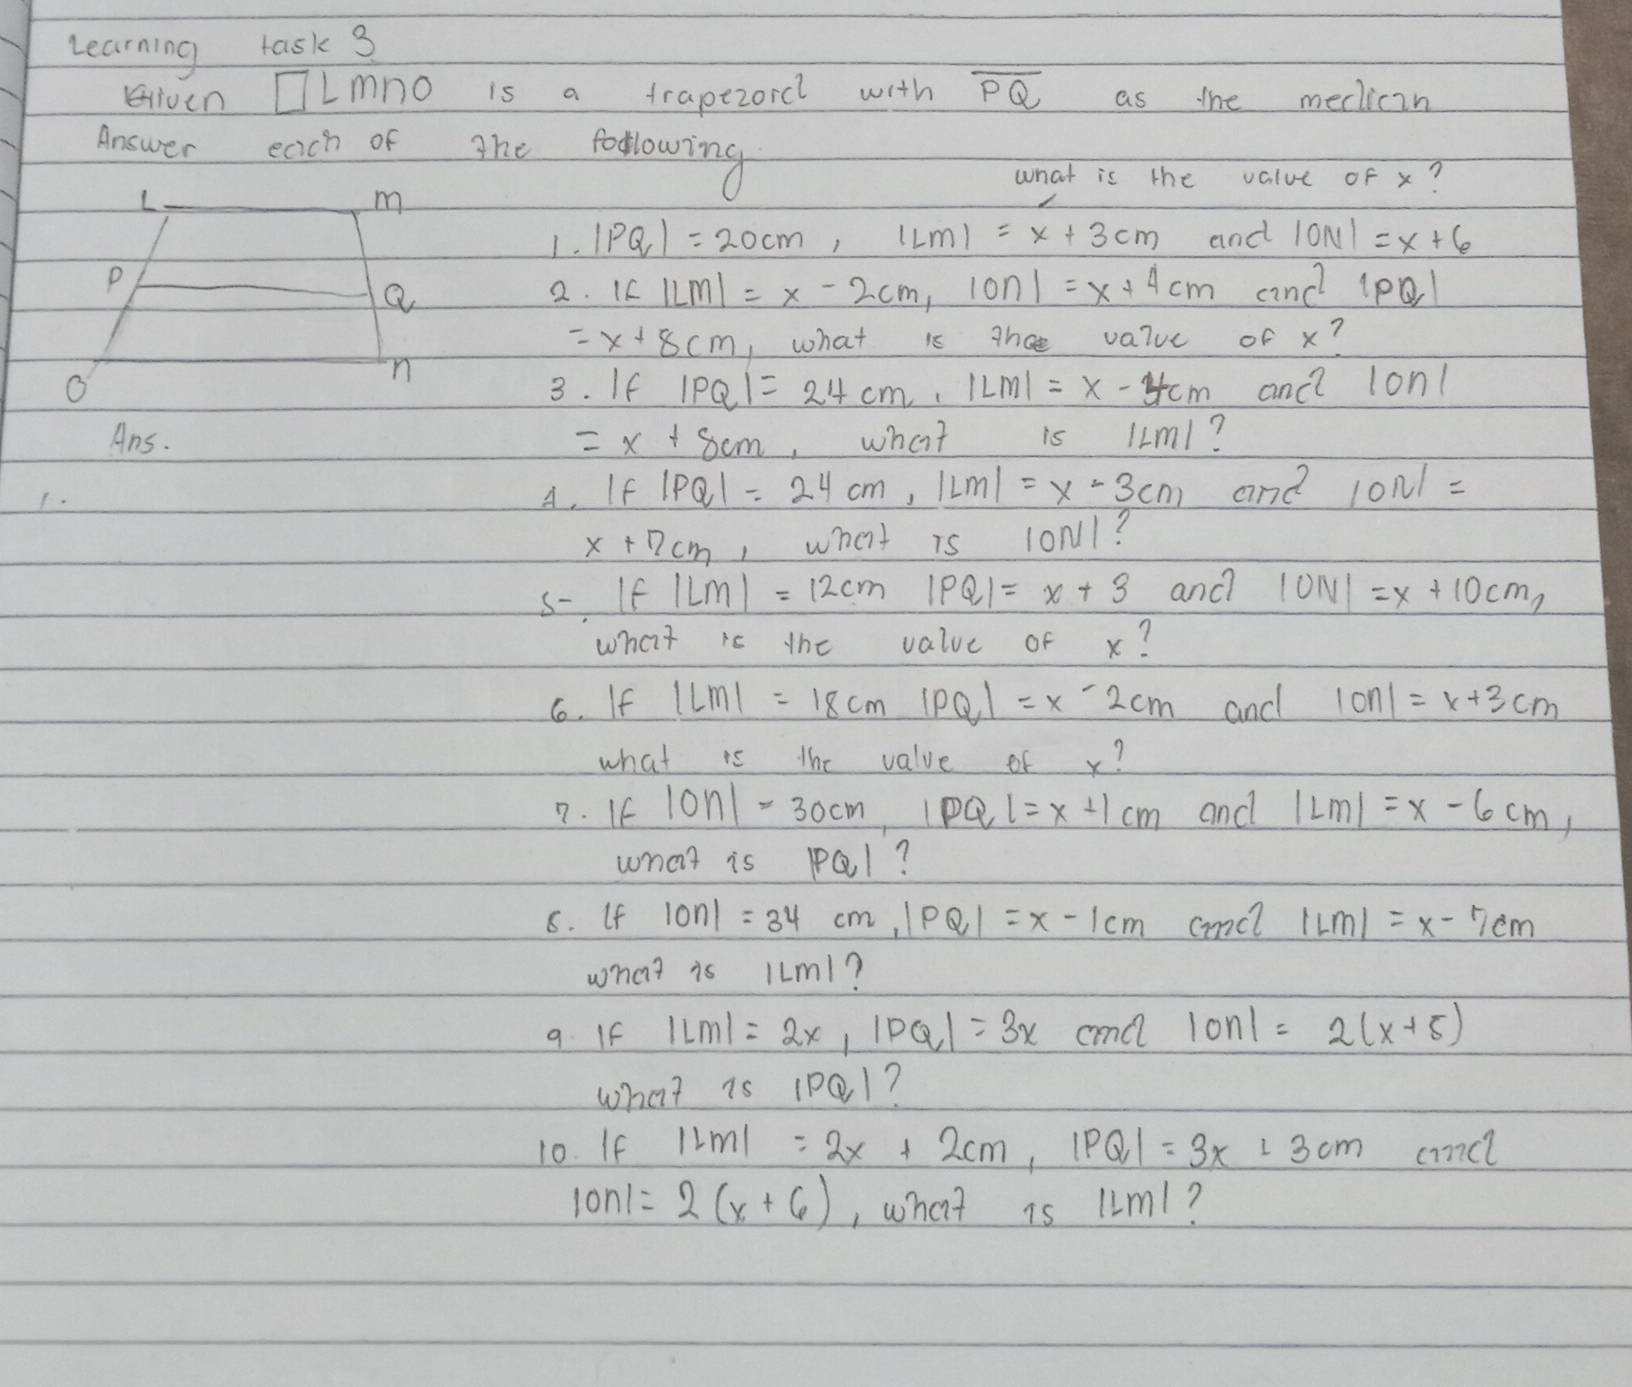 Learning task 3
Given □LMNO is a trapezoid with PQ as the median
Answer each of the following.
what is the value of x?
L M
1. |PQ| = 20cm, |LM| = x + 3cm and |ON| = x + 6
P Q
2. If |LM| = x - 2cm, |ON| = x + 4cm and |PQ|
= x + 8cm, what is the value of x?
O N
3. If |PQ| = 24 cm, |LM| = x - 4cm and |ON|
Ans. = x + 8cm, what is |LM|?
1.
4. If |PQ| = 24 cm, |LM| = x - 3cm and |ON| =
x + 7cm, what is |ON|?
5-. If |LM| = 12cm |PQ| = x + 3 and |ON| = x + 10cm,
what is the value of x?
6. If |LM| = 18cm |PQ| = x - 2cm and |ON| = x + 3cm
what is the value of x?
7. If |ON| = 30cm, |PQ| = x + 1cm and |LM| = x - 6cm,
what is |PQ|?
8. If |ON| = 34 cm, |PQ| = x - 1cm and |LM| = x - 7cm
what is |LM|?
9. If |LM| = 2x, |PQ| = 3x and |ON| = 2(x + 5)
what is |PQ|?
10. If |LM| = 2x + 2cm, |PQ| = 3x 3cm and
|ON| = 2(x + 6), what is |LM|?